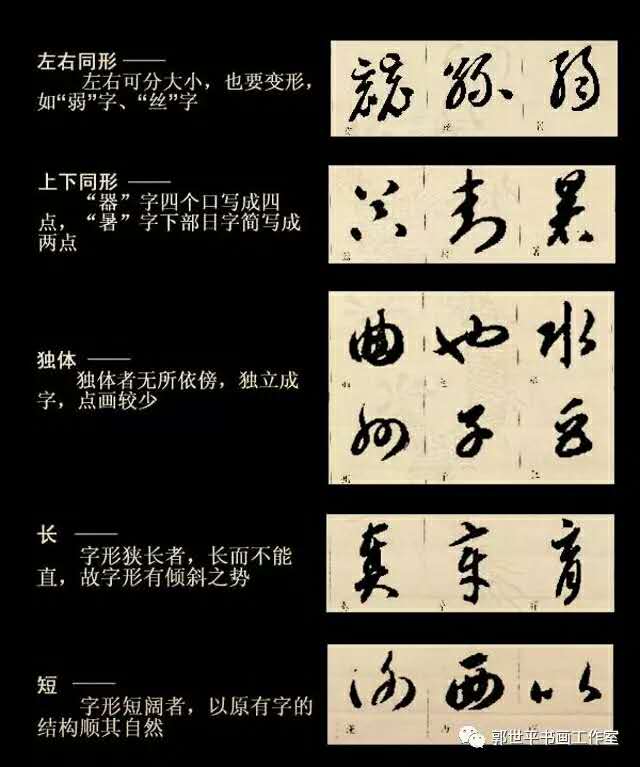 左右同形 ——
左右可分大小，也要变形，
如“弱”字、“丝”字
上下同形 ——
“器”字四个口写成四
点，“暑”字下部日字简写成
两点
独体 ——
独体者无所依傍，独立成
字，点画较少
曲 也 水
州 子
长 ——
字形狭长者，长而不能
直，故字形有倾斜之势
真 宰 育
短 ——
字形短阔者，以原有字的
结构顺其自然
西 以
郭世平书画工作室